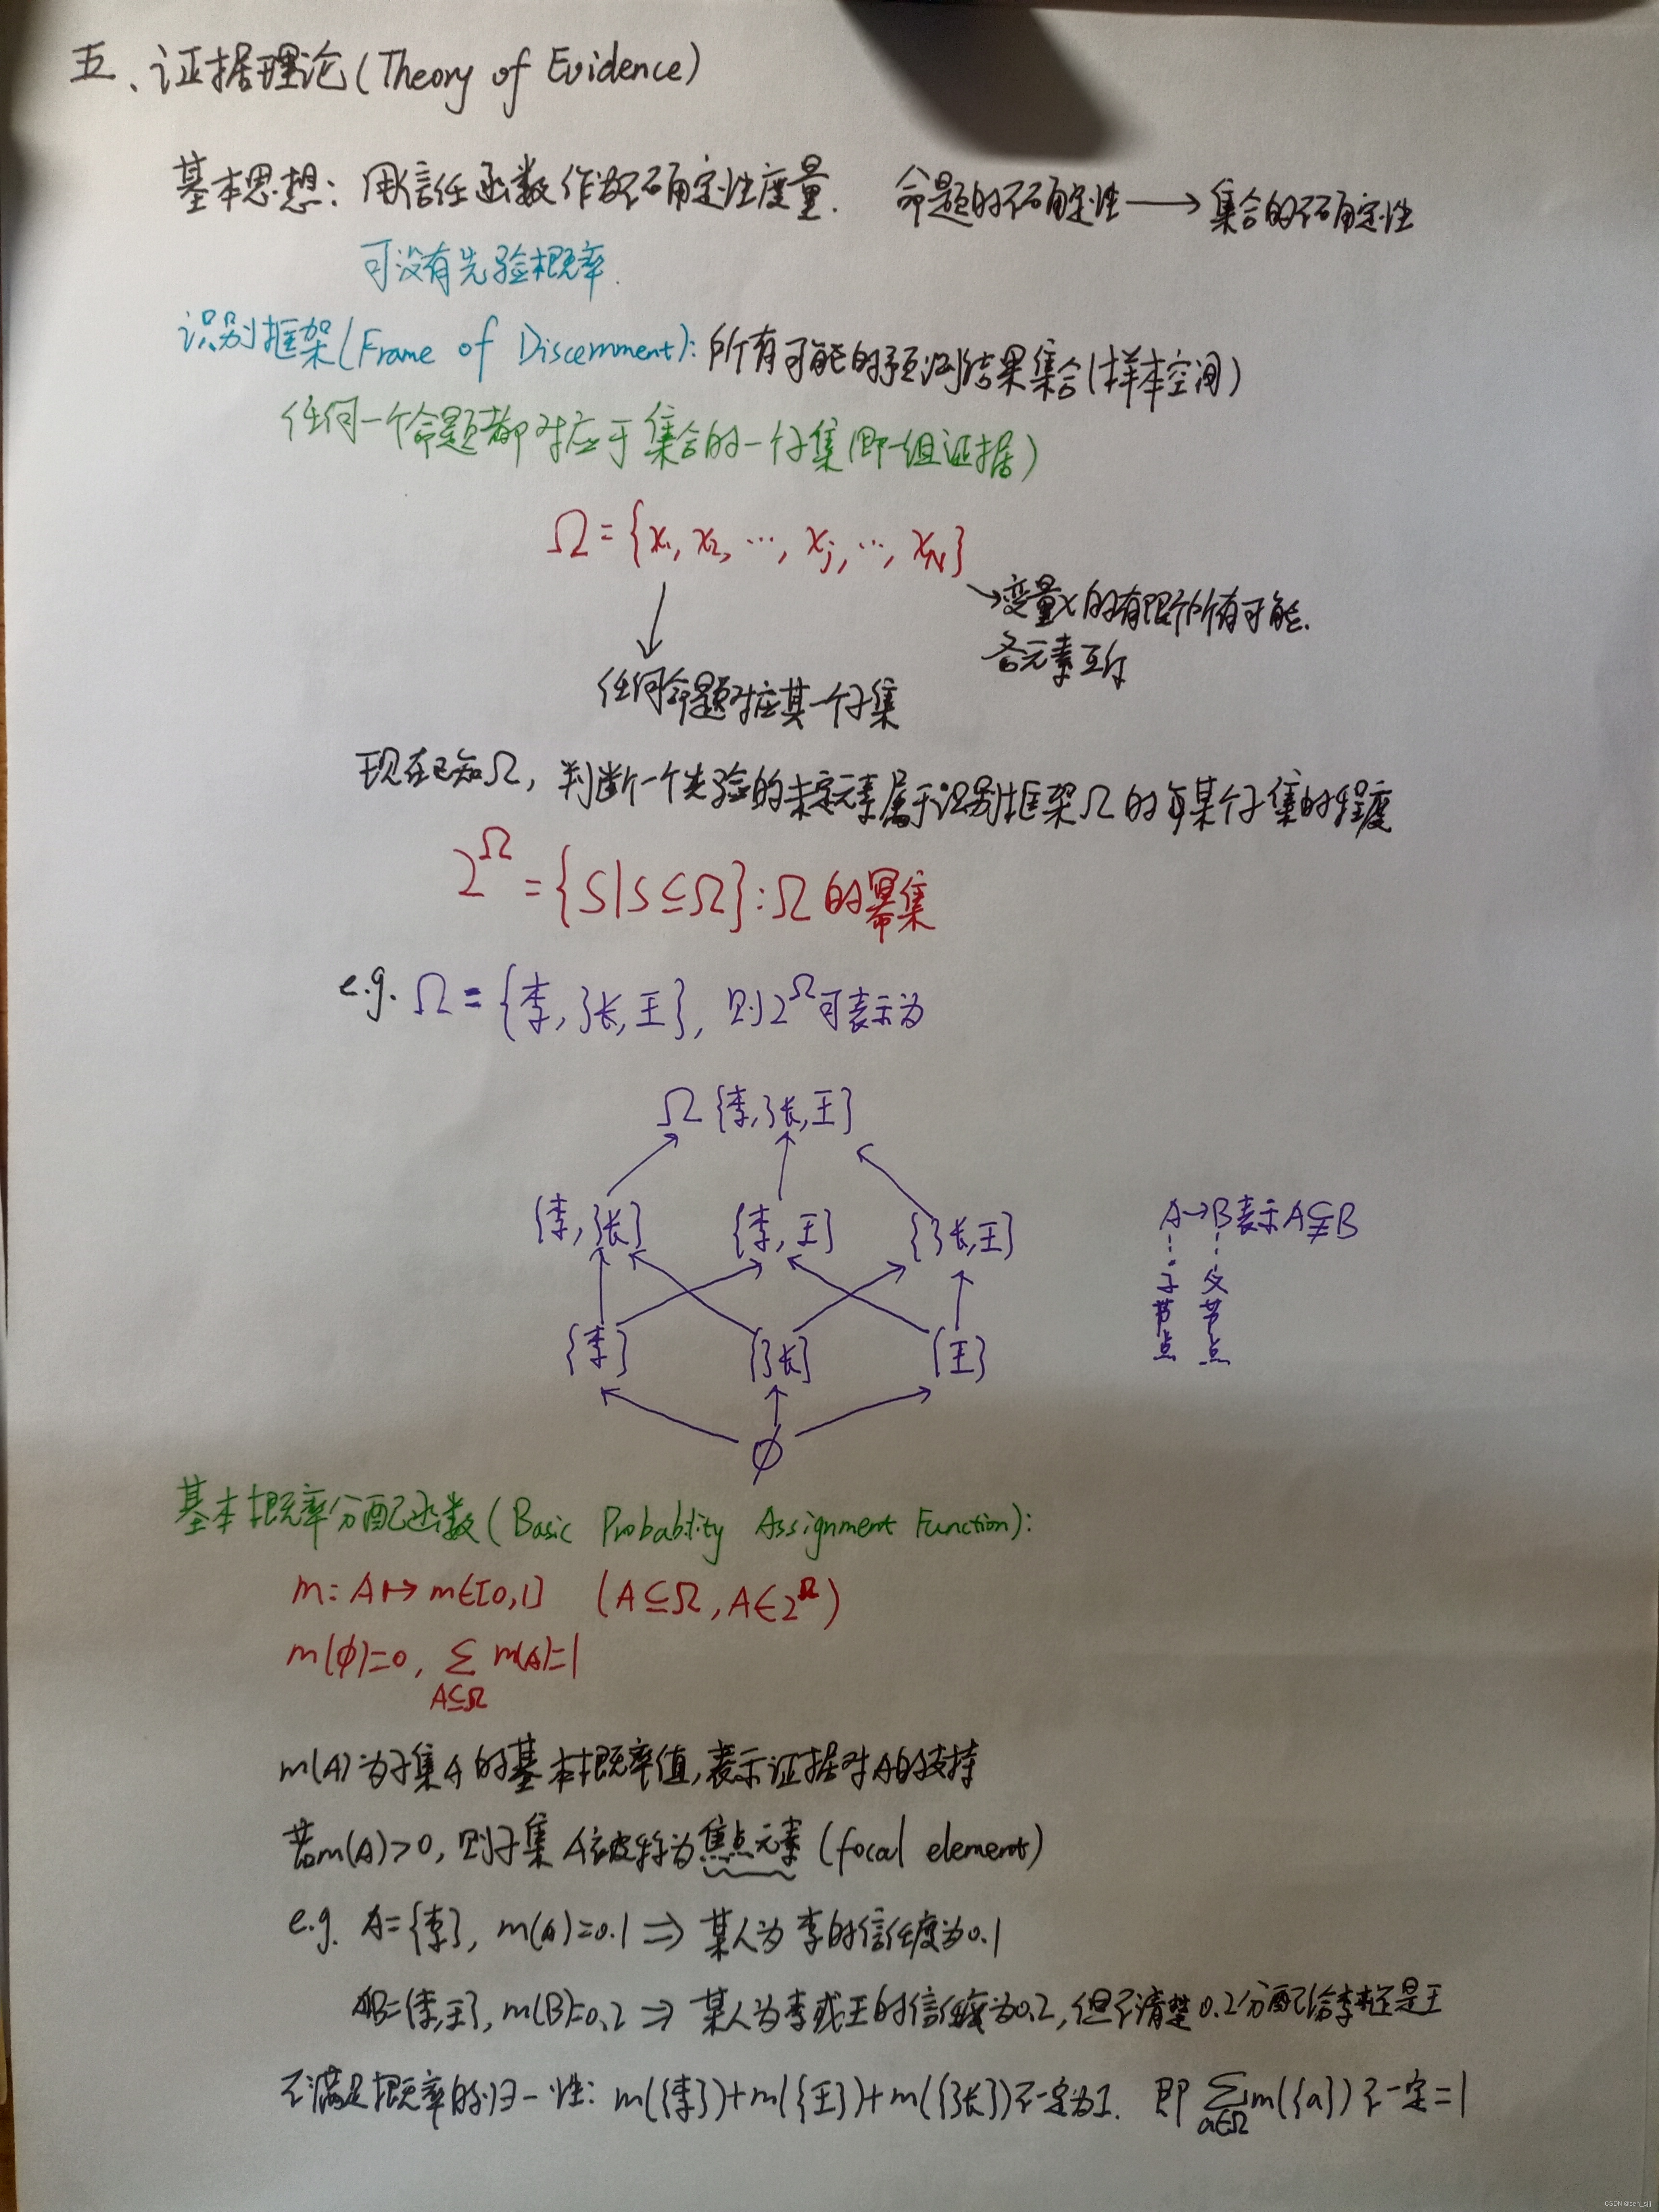 五、证据理论(Theory of Evidence)
基本思想: 用信任函数作为不确定性度量. 命题的不确定性→集合的不确定性
可没有先验概率.
识别框架(Frame of Discernment): 所有可能的预测结果集合(样本空间)
任何一个命题都对应于集合的一个子集(即一组证据)
Ω={x₁, x₂, …, xⱼ, …, x_N}
→变量x的有限个所有可能.
各元素互斥
任何命题对应某一个子集
现在已知Ω, 判断一个先验的未定元素属于识别框架Ω的某个子集的程度
2^Ω={S|S⊆Ω}:Ω的幂集
e.g. Ω={李,张,王}, 则2^Ω可表示为
Ω{李,张,王}
{李,张} {李,王} {张,王}
A→B表示A⊊B
子节点 父节点
{李} {张} {王}
∅
基本概率分配函数(Basic Probability Assignment Function):
m: A↦m∈[0,1] (A⊆Ω, A∈2^Ω)
m(∅)=0, ∑ m(A)=1
A⊆Ω
m(A)为子集A的基本概率值,表示证据对A的支持
若m(A)>0, 则子集A被称为焦点元素(focal element)
e.g. A={李}, m(A)=0.1 ⇒ 某人为李的信任度为0.1
B={李,王}, m(B)=0.2 ⇒ 某人为李或王的信任度为0.2,但不清楚0.2分配给李还是王
不满足概率的归一性: m({李})+m({王})+m({张})不一定为1. 即 ∑ m({a})不一定=1
a∈Ω
CSDN @seh_sjlj